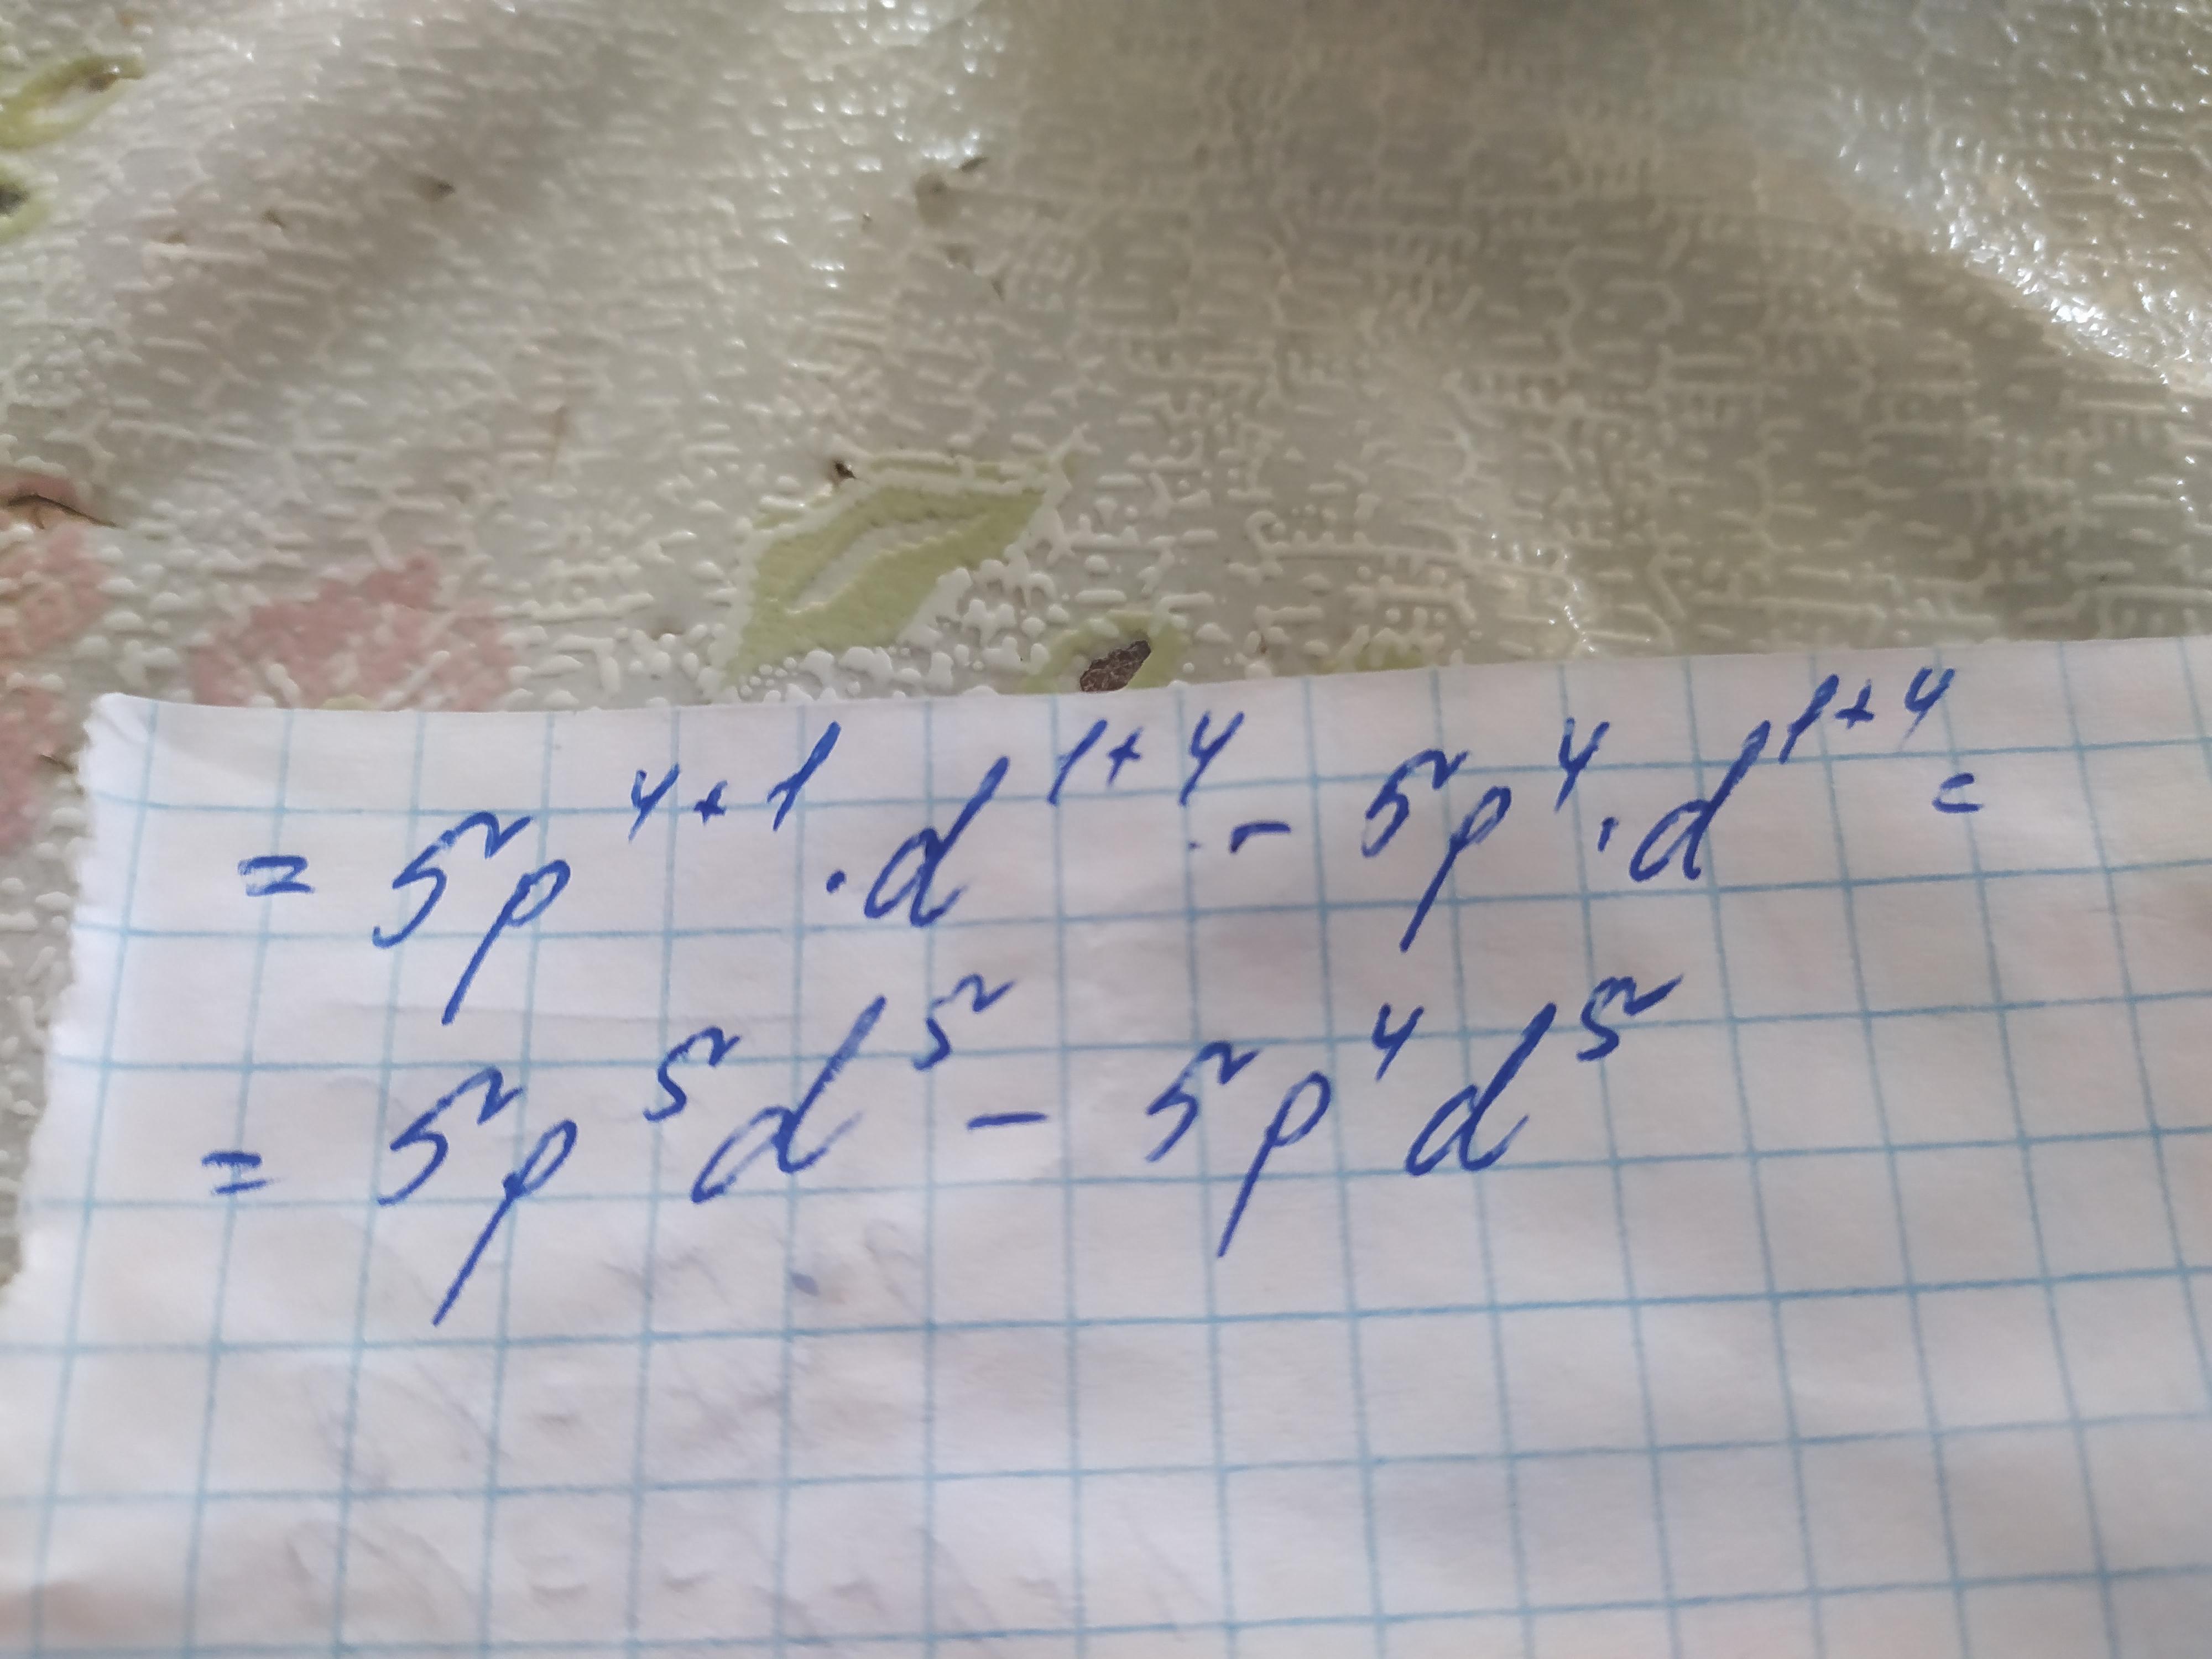 = 5p⁴⁺¹ · d¹⁺⁴ - 5p⁴ · d¹⁺⁴ =
= 5p⁵d⁵ - 5p⁴d⁵